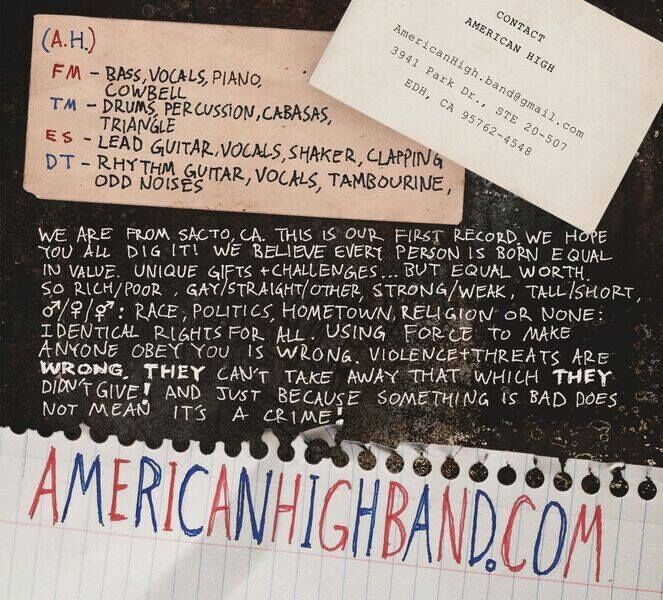 (A.H.)
FM - BASS, VOCALS, PIANO,
COWBELL
TM - DRUMS, PERCUSSION, CABASAS,
TRIANGLE
ES - LEAD GUITAR, VOCALS, SHAKER, CLAPPING
DT - RHYTHM GUITAR, VOCALS, TAMBOURINE,
ODD NOISES
CONTACT
AMERICAN HIGH
AmericanHigh.band@gmail.com
3941 Park Dr., STE 20-507
EDH, CA 95762-4548
WE ARE FROM SACTO, CA. THIS IS OUR FIRST RECORD. WE HOPE
YOU ALL DIG IT! WE BELIEVE EVERY PERSON IS BORN EQUAL
IN VALUE. UNIQUE GIFTS + CHALLENGES... BUT EQUAL WORTH.
SO RICH/POOR, GAY/STRAIGHT/OTHER, STRONG/WEAK, TALL/SHORT,
♂/♀/⚥: RACE, POLITICS, HOMETOWN, RELIGION OR NONE:
IDENTICAL RIGHTS FOR ALL. USING FORCE TO MAKE
ANYONE OBEY YOU IS WRONG. VIOLENCE + THREATS ARE
WRONG. THEY CAN'T TAKE AWAY THAT WHICH THEY
DIDN'T GIVE! AND JUST BECAUSE SOMETHING IS BAD DOES
NOT MEAN IT'S A CRIME!
AMERICANHIGHBAND.COM